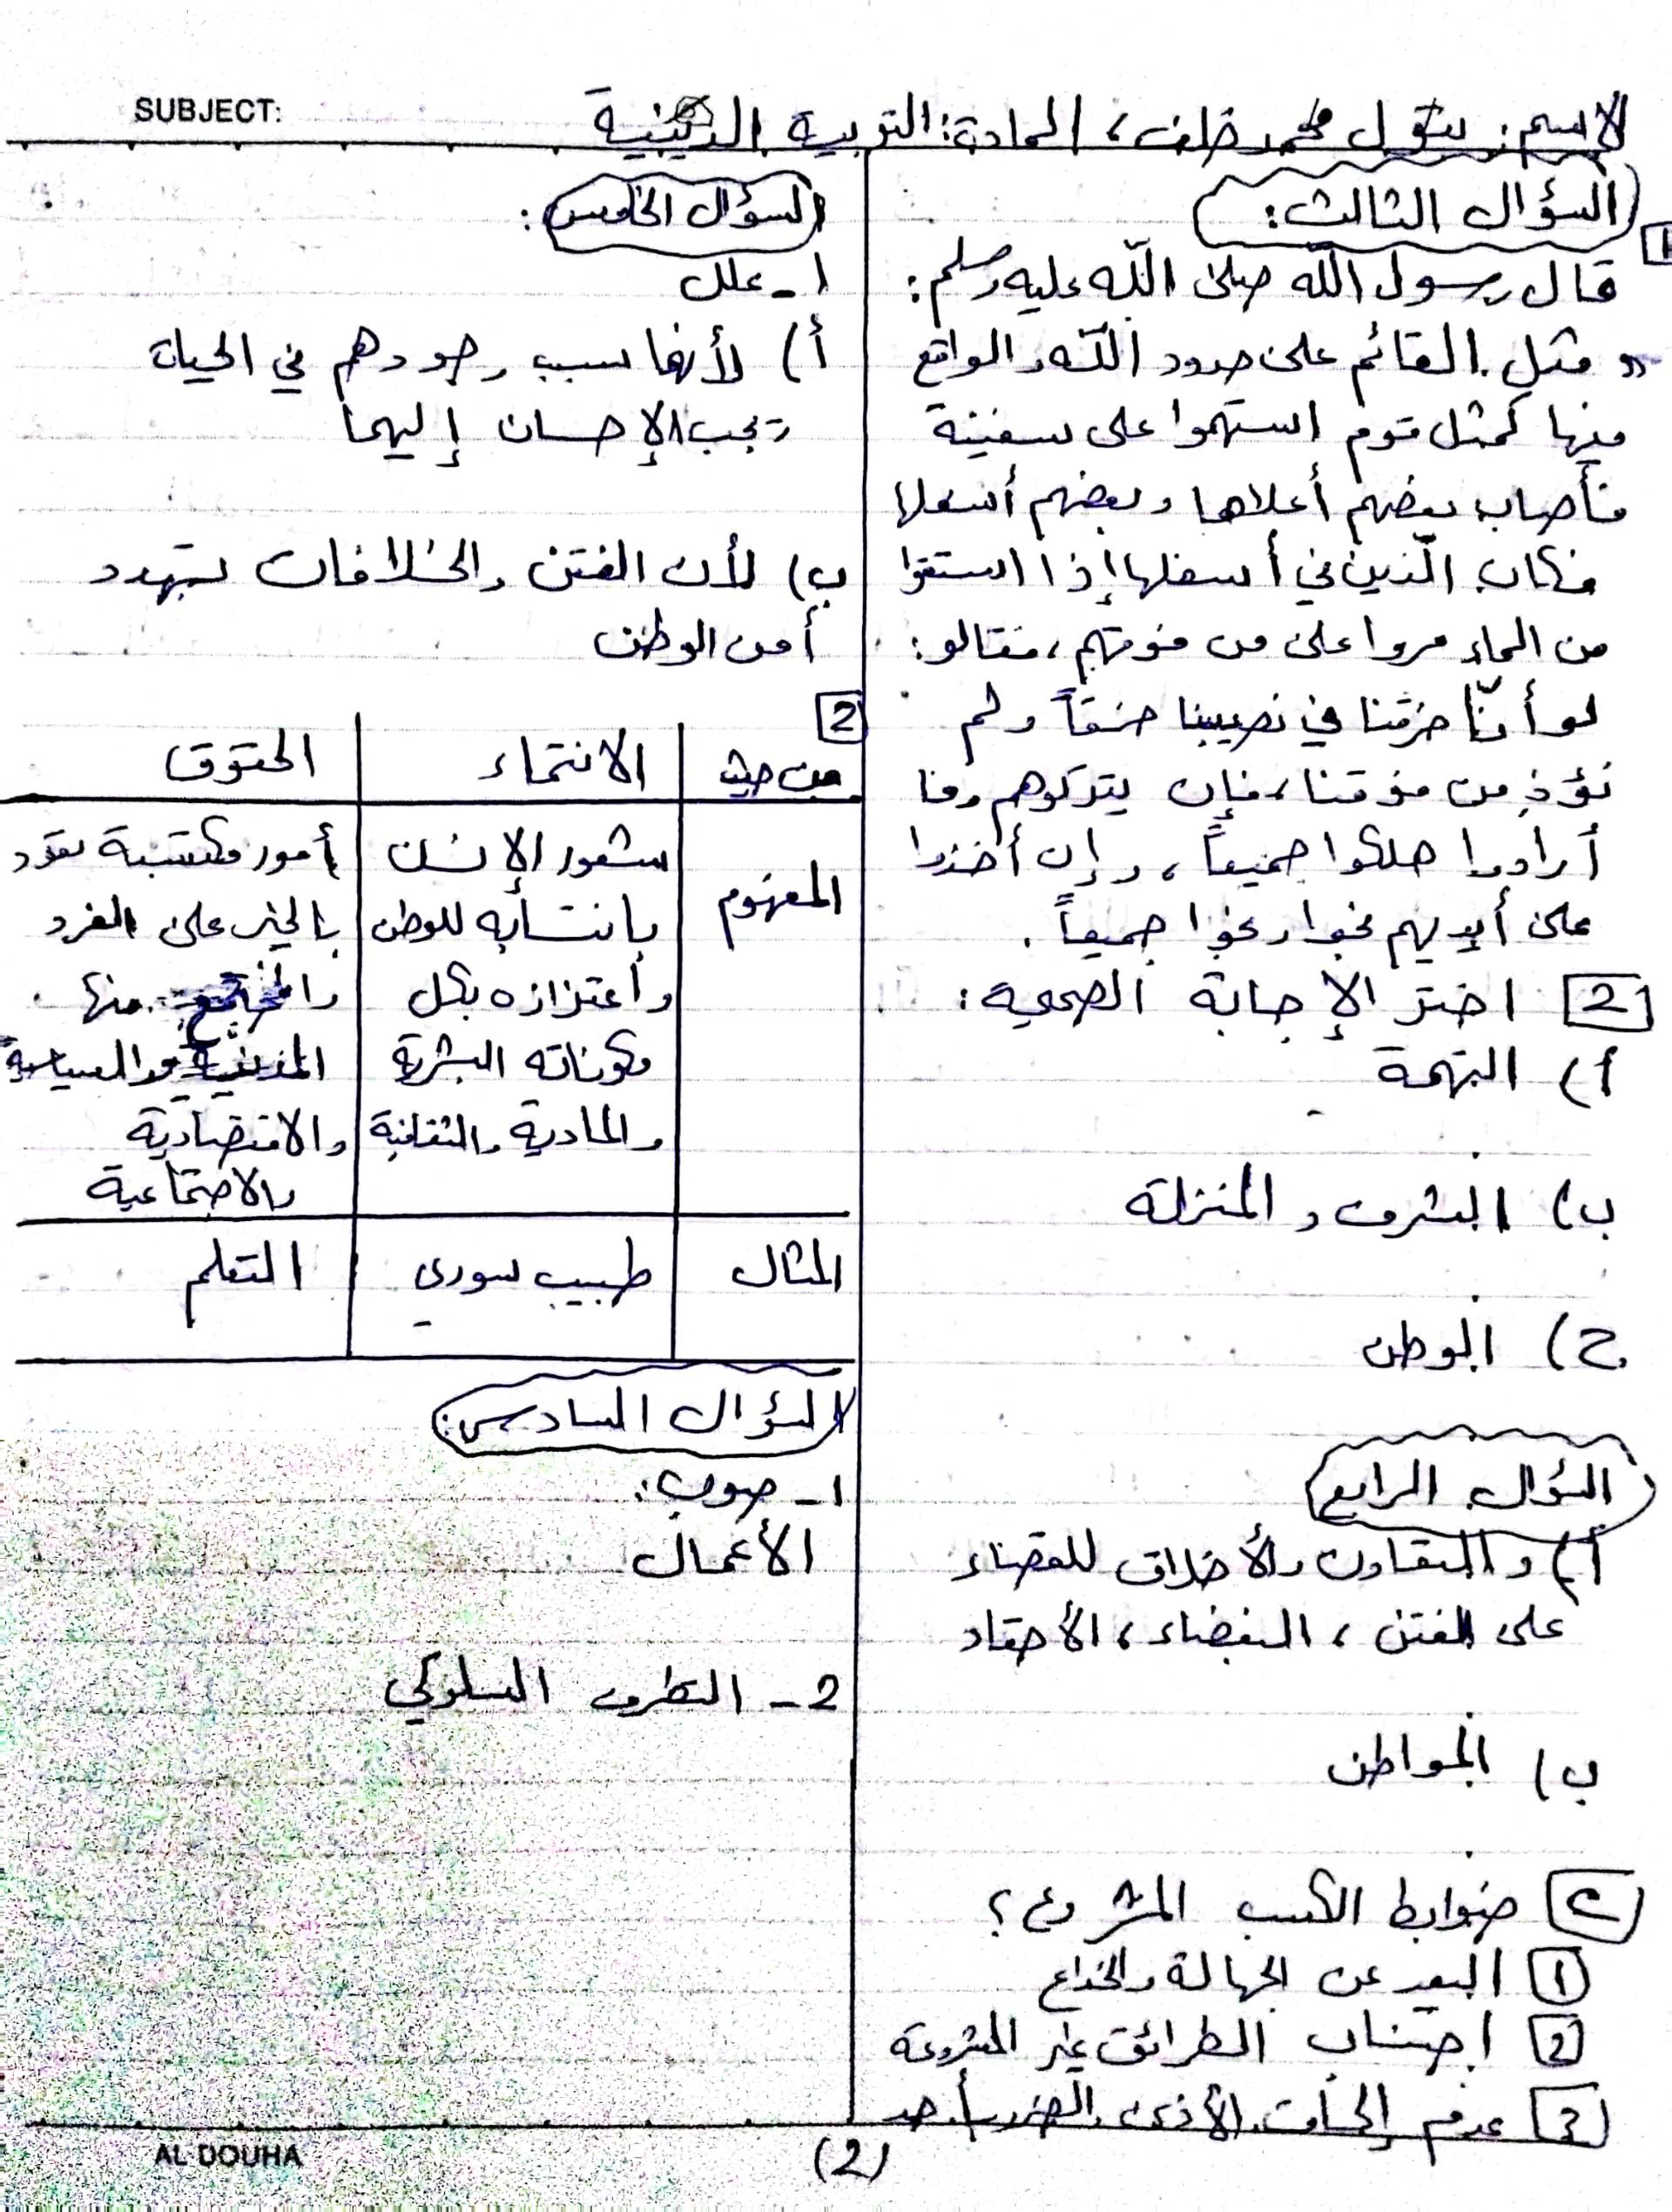 SUBJECT:
الاسم: بتول محمد خلف، المادة: التربية الدينية
السؤال الثالث:
1
قال رسول اللّه صلى اللّه عليه وسلم:
« مثل القائم على حدود اللّه والواقع
فيها كمثل قوم استهموا على سفينة
فأصاب بعضهم أعلاها وبعضهم أسفلها
فكان الّذين في أسفلها إذا استقوا
من الماء مروا على من فوقهم، فقالو:
لو أنّا خرقنا في نصيبنا خرقاً ولم
نؤذِ من فوقنا، فإن يتركوهم وما
أرادوا هلكوا جميعاً، وإن أخذوا
على أيديهم نجوا ونجوا جميعاً.
2 اختر الإجابة الصحيحة:
أ) التهمة
ب) الشرف والمنزلة
ج) الوطن
السؤال الرابع
أ) والتعاون والأخلاق للقضاء
على الفتن، البغضاء، الأحقاد
ب) المواطن
ج ضوابط الكسب المشروع؟
1 البعد عن الجهالة والخداع
2 اجتناب الطرائق غير المشروعة
3 عدم إلحاق الأذى والضرر بأحد
السؤال الخامس:
1- علل
أ) لأنهما سبب وجودهم في الحياة
ويجب الإحسان إليهما
ب) لأن الفتن والخلافات تهدد
أمن الوطن
2
من حيث | الانتماء | الحقوق
المفهوم | شعور الإنسان | أمور مكتسبة تعود
بانتسابه للوطن | بالخير على الفرد
واعتزازه بكل | والمجتمع منها
مكوناته البشرية | المدنية والسياسية
والمادية والثقافية | والاقتصادية
والاجتماعية
المثال | طبيب سوري | التعلم
السؤال السادس:
1- صوب:
الأعمال
2- التطرف السلوكي
AL DOUHA
(2)